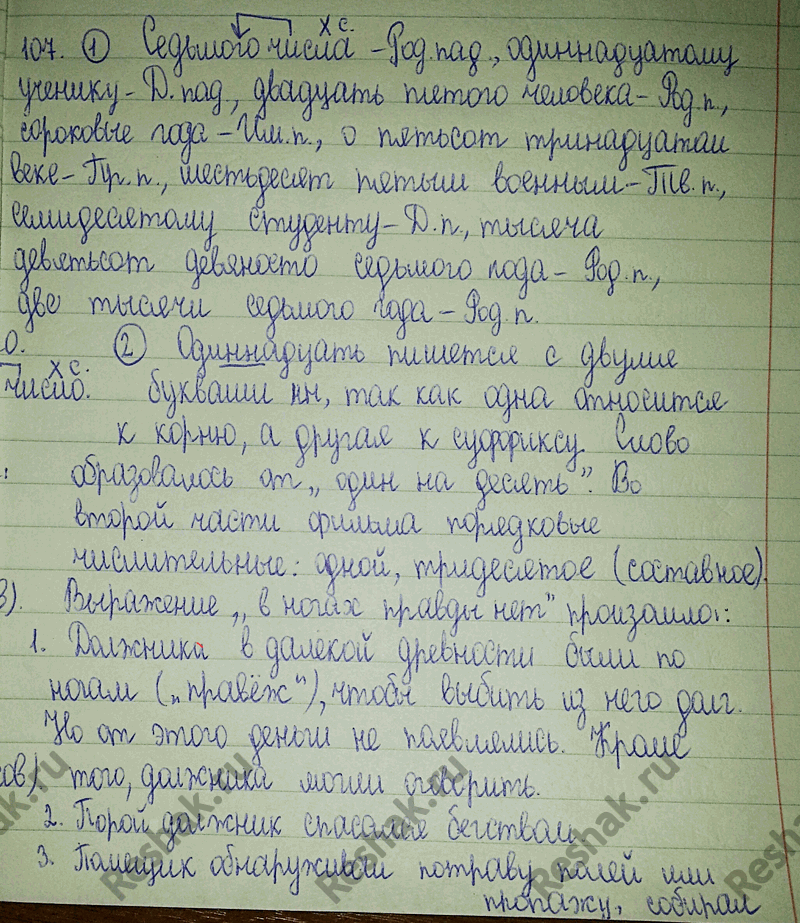 х с.
107. ① Седьмого числа - Род. пад., одиннадцатому
ученику - Д. пад., двадцать пятого человека - Род. п.,
сороковые года - Им. п., о пятьсот тринадцатом
веке - Пр. п., шестьдесят пятым военным - Тв. п.,
семидесятому студенту - Д. п., тысяча
девятьсот девяносто седьмого года - Род. п.,
две тысячи седьмого года - Род. п.
0. ② Одиннадцать пишется с двумя
х с.
число. буквами нн, так как одна относится
к корню, а другая к суффиксу. Слово
: образовалось от „один на десять”. Во
второй части фильма порядковые
числительные: одной, тридесятое (составное).
3). Выражение „в ногах правды нет” произошло:
1. Должника в далёкой древности били по
ногам („правёж”), чтобы выбить из него долг.
Но от этого деньги не появлялись. Кроме
ов). того, должника могли оговорить.
2. Порой должник спасался бегством.
3. Помещик обнаруживал потраву полей или
пропажу, собирал
Reshak.ru
Reshak.ru
Reshak.ru
Reshak.ru